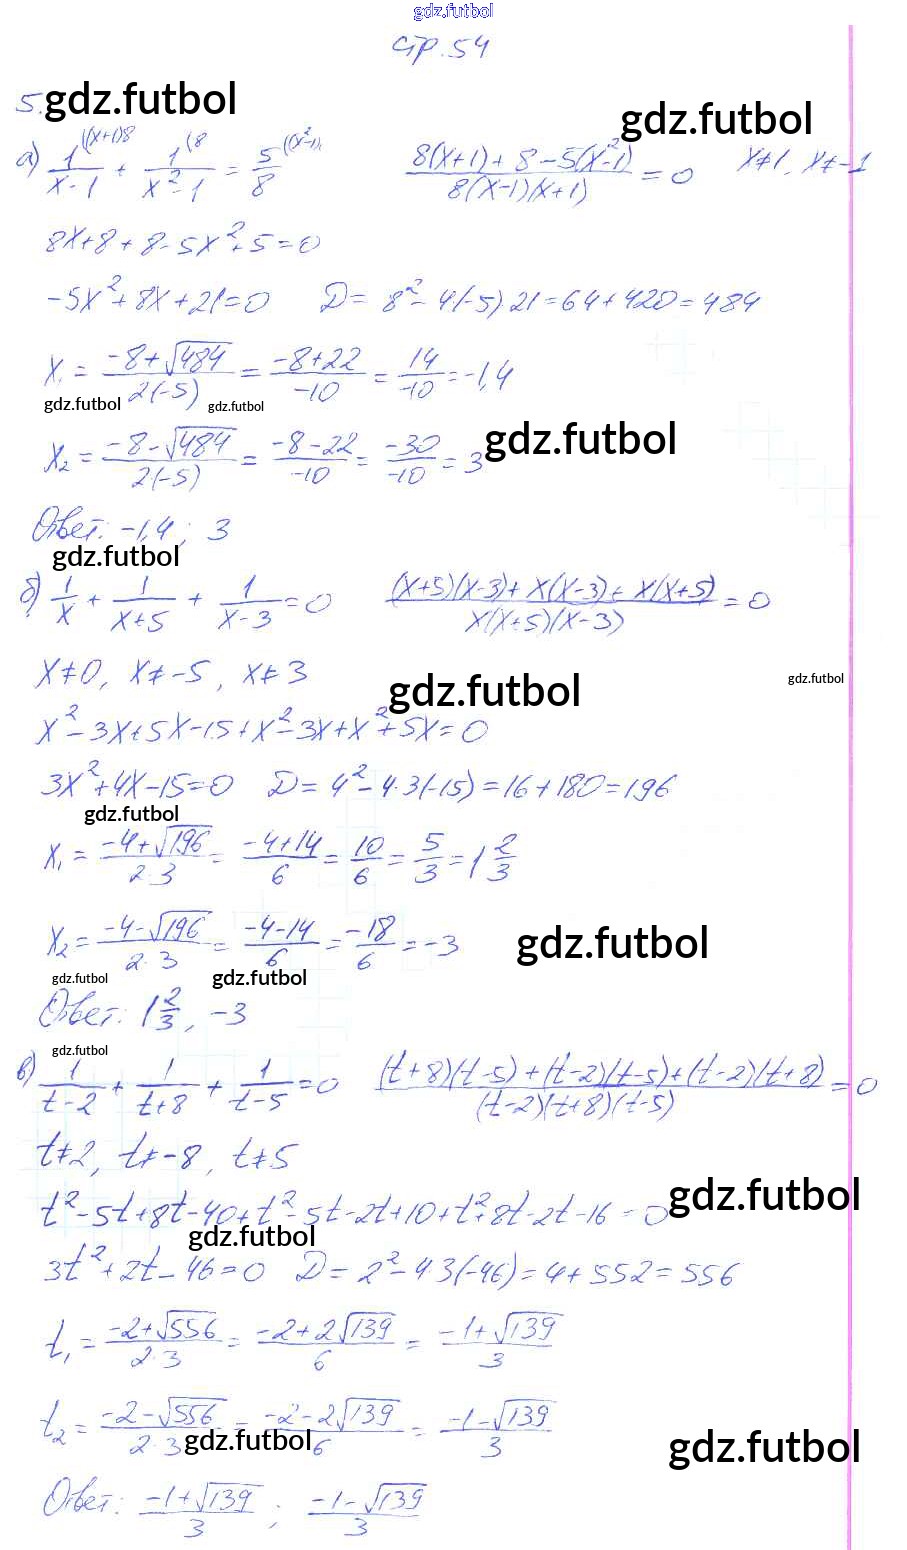 gdz.futbol
стр. 54
5. gdz.futbol
gdz.futbol
а) 1/(x-1) ((x+1)8 + 1/(x²-1) (8 = 5/8 ((x²-1) (8(x+1)+8-5(x²-1))/(8(x-1)(x+1)) = 0 x≠1, x≠-1
8x+8+8-5x²+5=0
-5x²+8x+21=0 D= 8²-4(-5)21=64+420=484
x₁ = (-8+√484)/(2(-5)) = (-8+22)/(-10) = 14/(-10) = -1,4
gdz.futbol gdz.futbol
x₂ = (-8-√484)/(2(-5)) = (-8-22)/(-10) = (-30)/(-10) = 3 gdz.futbol
Ответ: -1,4; 3
gdz.futbol
б) 1/x + 1/(x+5) + 1/(x-3) = 0 ((x+5)(x-3)+x(x-3)+x(x+5))/(x(x+5)(x-3)) = 0
x≠0, x≠-5, x≠3 gdz.futbol gdz.futbol
x²-3x+5x-15+x²-3x+x²+5x=0
3x²+4x-15=0 D= 4²-4·3(-15)=16+180=196
gdz.futbol
x₁ = (-4+√196)/(2·3) = (-4+14)/6 = 10/6 = 5/3 = 1 2/3
x₂ = (-4-√196)/(2·3) = (-4-14)/6 = -18/6 = -3 gdz.futbol
gdz.futbol gdz.futbol
Ответ: 1 2/3, -3
gdz.futbol
в) 1/(t-2) + 1/(t+8) + 1/(t-5) = 0 ((t+8)(t-5)+(t-2)(t-5)+(t-2)(t+8))/((t-2)(t+8)(t-5)) = 0
t≠2, t≠-8, t≠5
t²-5t+8t-40+t²-5t-2t+10+t²+8t-2t-16=0 gdz.futbol
gdz.futbol
3t²+2t-46=0 D= 2²-4·3(-46)=4+552=556
t₁ = (-2+√556)/(2·3) = (-2+2√139)/6 = (-1+√139)/3
t₂ = (-2-√556)/(2·3) = (-2-2√139)/6 = (-1-√139)/3
gdz.futbol gdz.futbol
Ответ: (-1+√139)/3; (-1-√139)/3